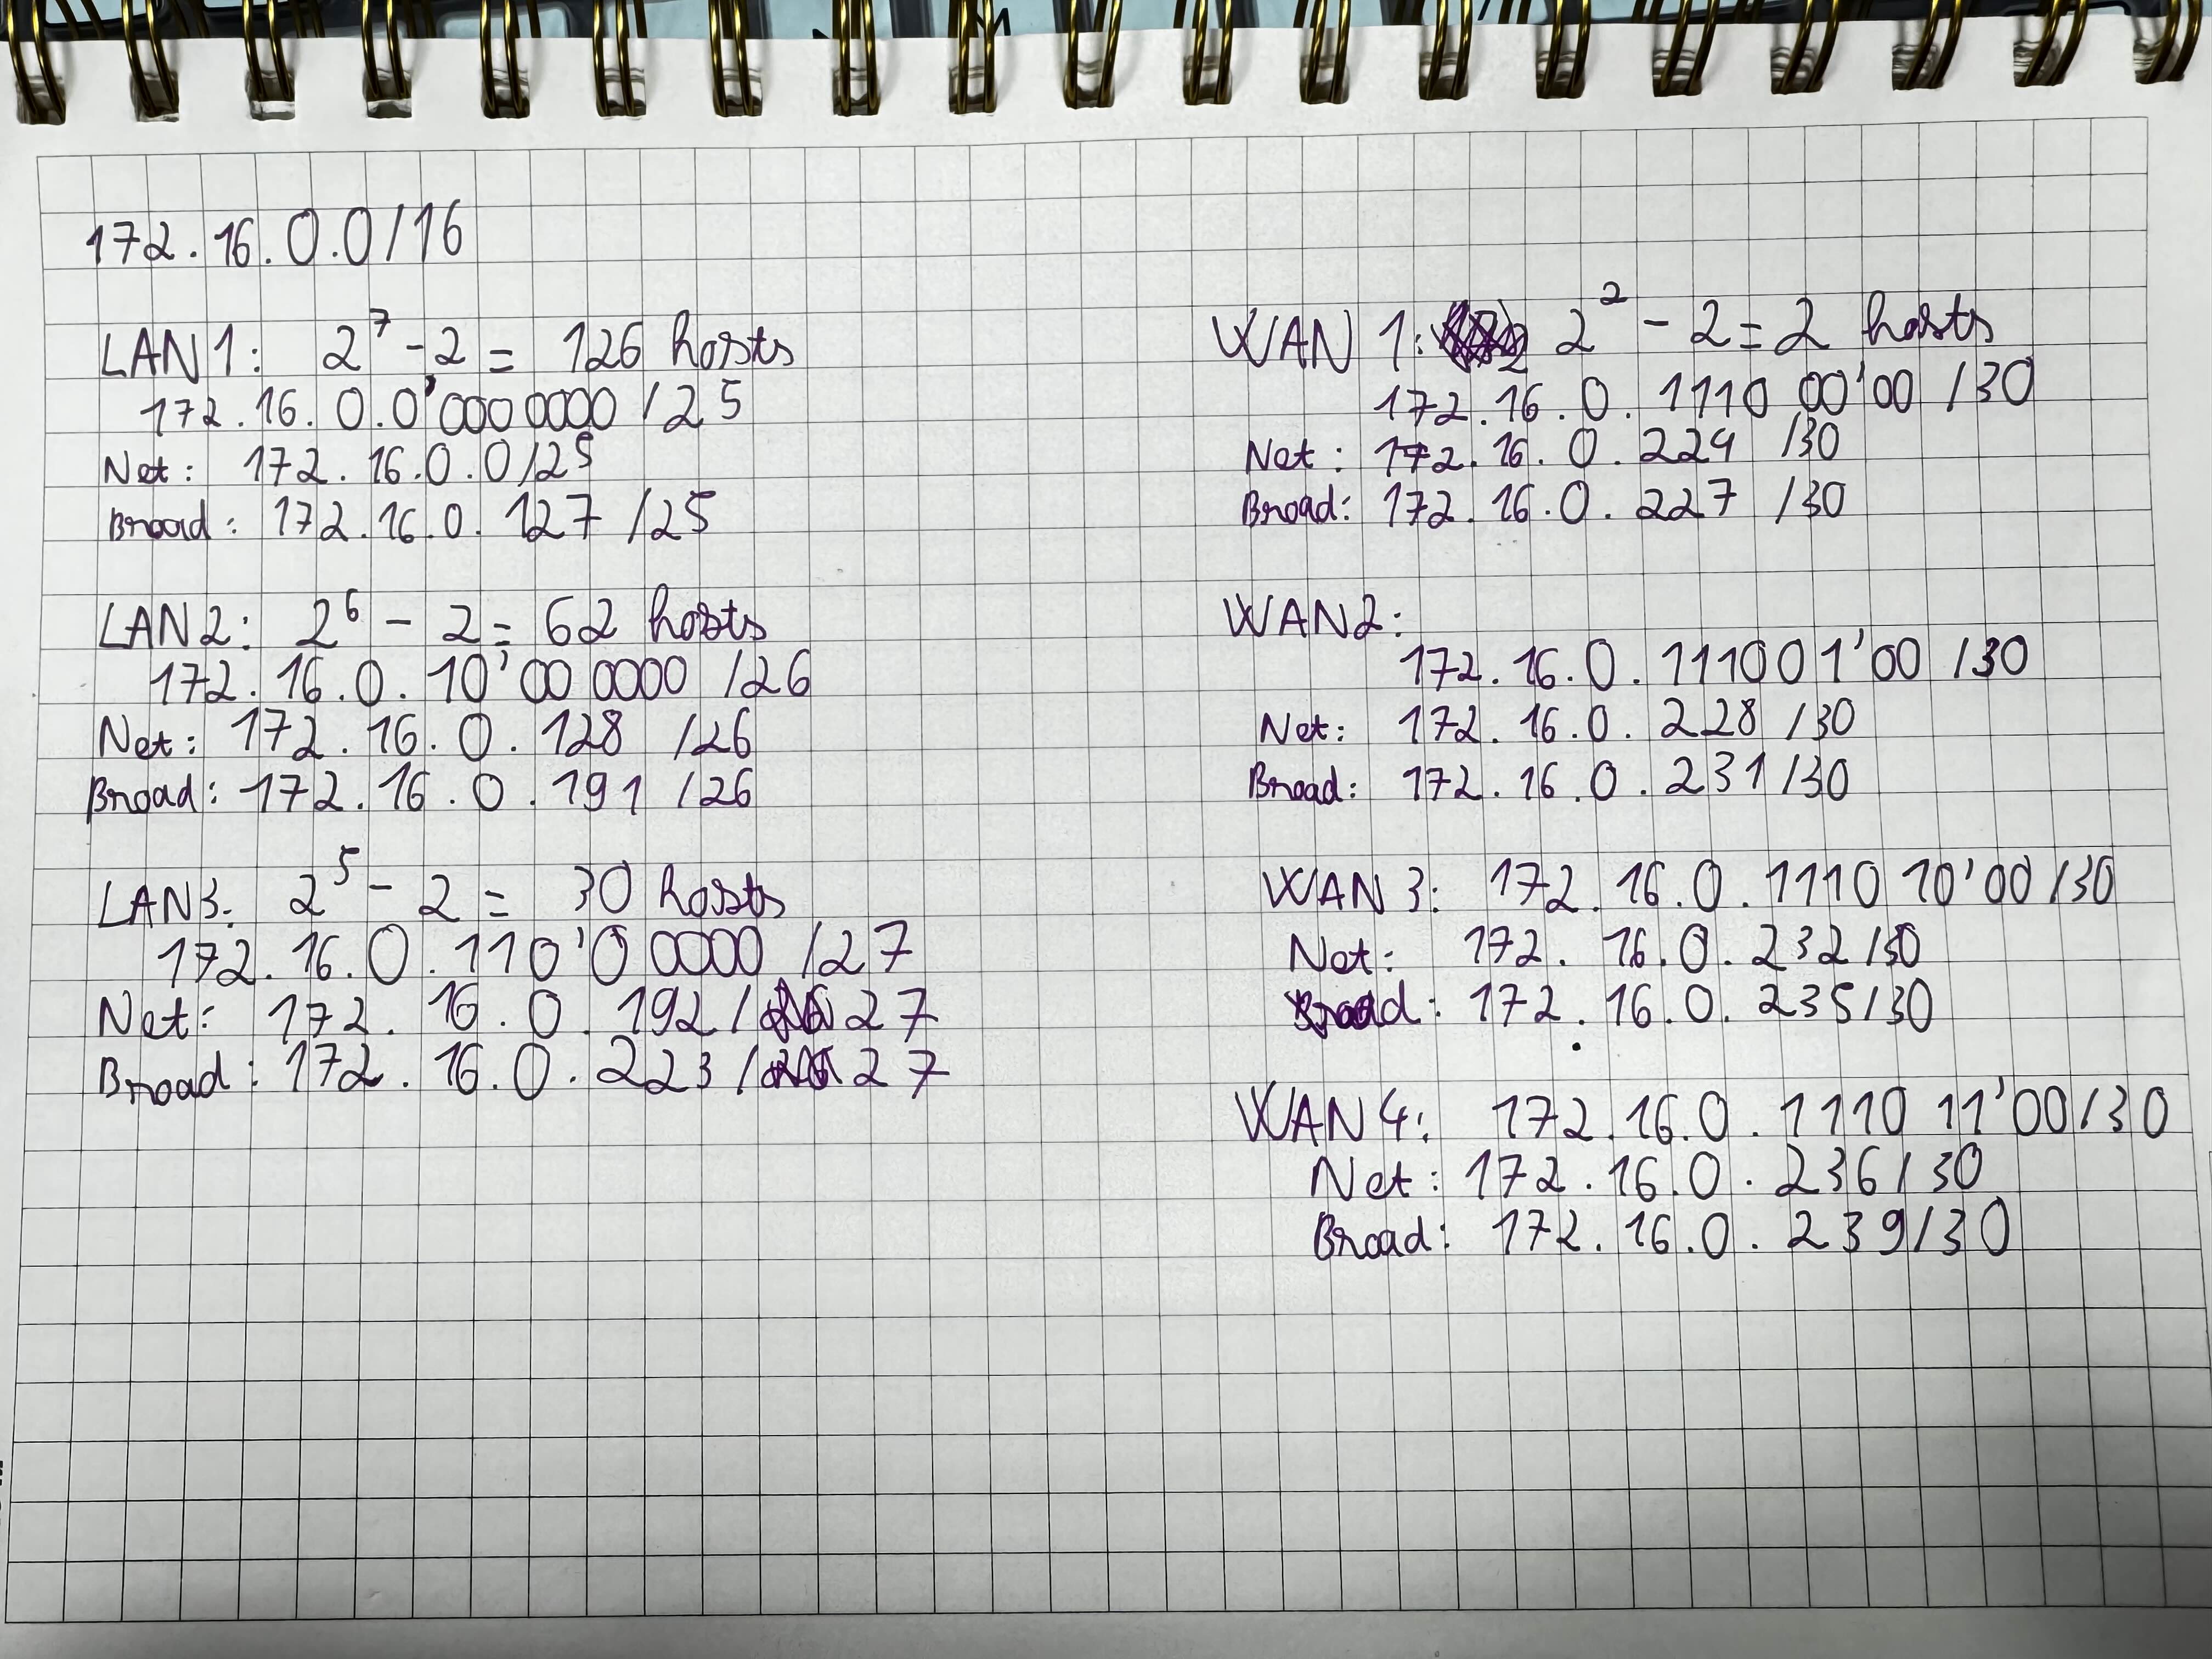 172.16.0.0/16
LAN1: 2^7 - 2 = 126 hosts
172.16.0.0'0000000 /25
Net: 172.16.0.0/25
Broad: 172.16.0.127 /25
LAN2: 2^6 - 2 = 62 hosts
172.16.0.10'00 0000 /26
Net: 172.16.0.128 /26
Broad: 172.16.0.191 /26
LAN3: 2^5 - 2 = 30 hosts
172.16.0.110'0 0000 /27
Net: 172.16.0.192/27
Broad: 172.16.0.223/27
WAN 1: 2^2 - 2 = 2 hosts
172.16.0.1110 00'00 /30
Net: 172.16.0.224 /30
Broad: 172.16.0.227 /30
WAN2:
172.16.0.111001'00 /30
Net: 172.16.0.228 /30
Broad: 172.16.0.231 /30
WAN 3: 172.16.0.1110 10'00 /30
Net: 172.16.0.232/30
Broad: 172.16.0.235/30
WAN 4: 172.16.0.1110 11'00/30
Net: 172.16.0.236/30
Broad: 172.16.0.239/30